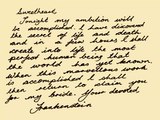 Sweetheart
Tonight my ambition will
be accomplished. I have discovered
the secret of life and death
and in a few hours I shall
create into life the most
perfect human being that
the world has yet known.
When this marvellous work
is accomplished I shall
then return to claim you
for my bride. Your devoted,
Frankenstein